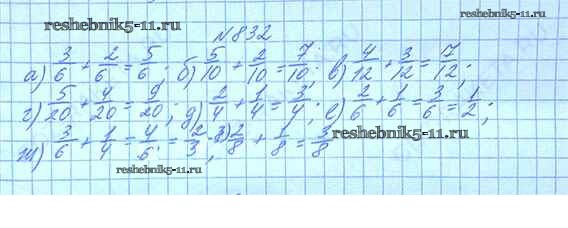 reshebnik5-11.ru
№832
а) 3/6 + 2/6 = 5/6; б) 5/10 + 2/10 = 7/10; в) 4/12 + 3/12 = 7/12;
г) 5/20 + 4/20 = 9/20; д) 2/4 + 1/4 = 3/4; е) 2/6 + 1/6 = 3/6 = 1/2;
ж) 3/6 + 1/4 = 4/6 = 2/3; з) 2/8 + 1/8 = 3/8 reshebnik5-11.ru
reshebnik5-11.ru